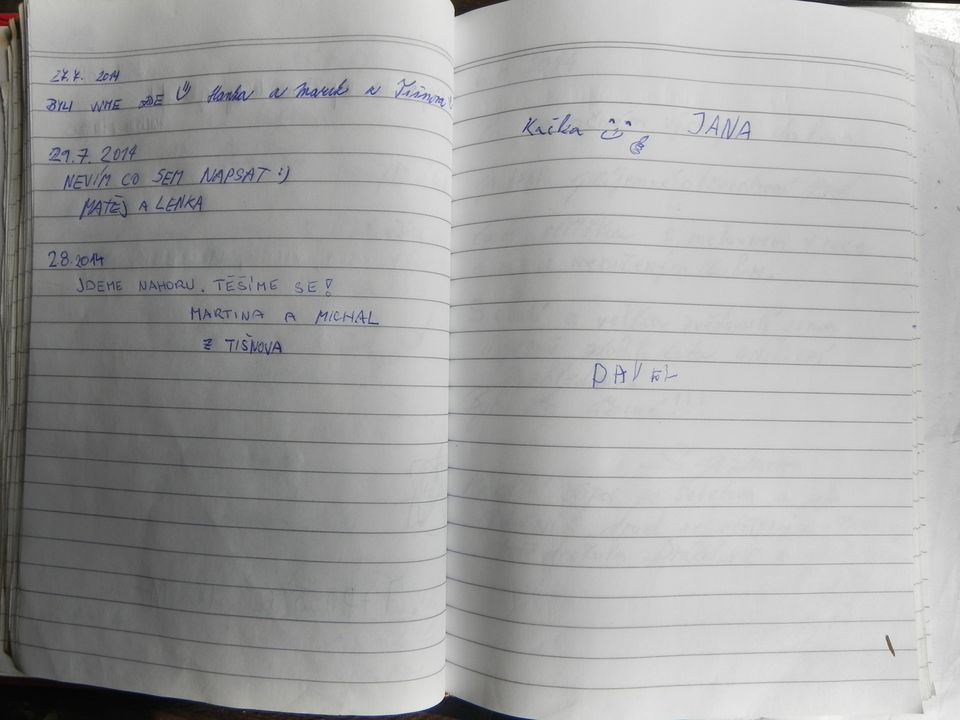 27.7. 2014
BYLI JSME ZDE Hanka a Marek a Tišnova
29.7. 2014
NEVÍM CO SEM NAPSAT :)
MATĚJ A LENKA
28.2014
JDEME NAHORU. TĚŠÍME SE!
MARTINA A MICHAL
Z TIŠNOVA
Kačka JANA
PAVEL